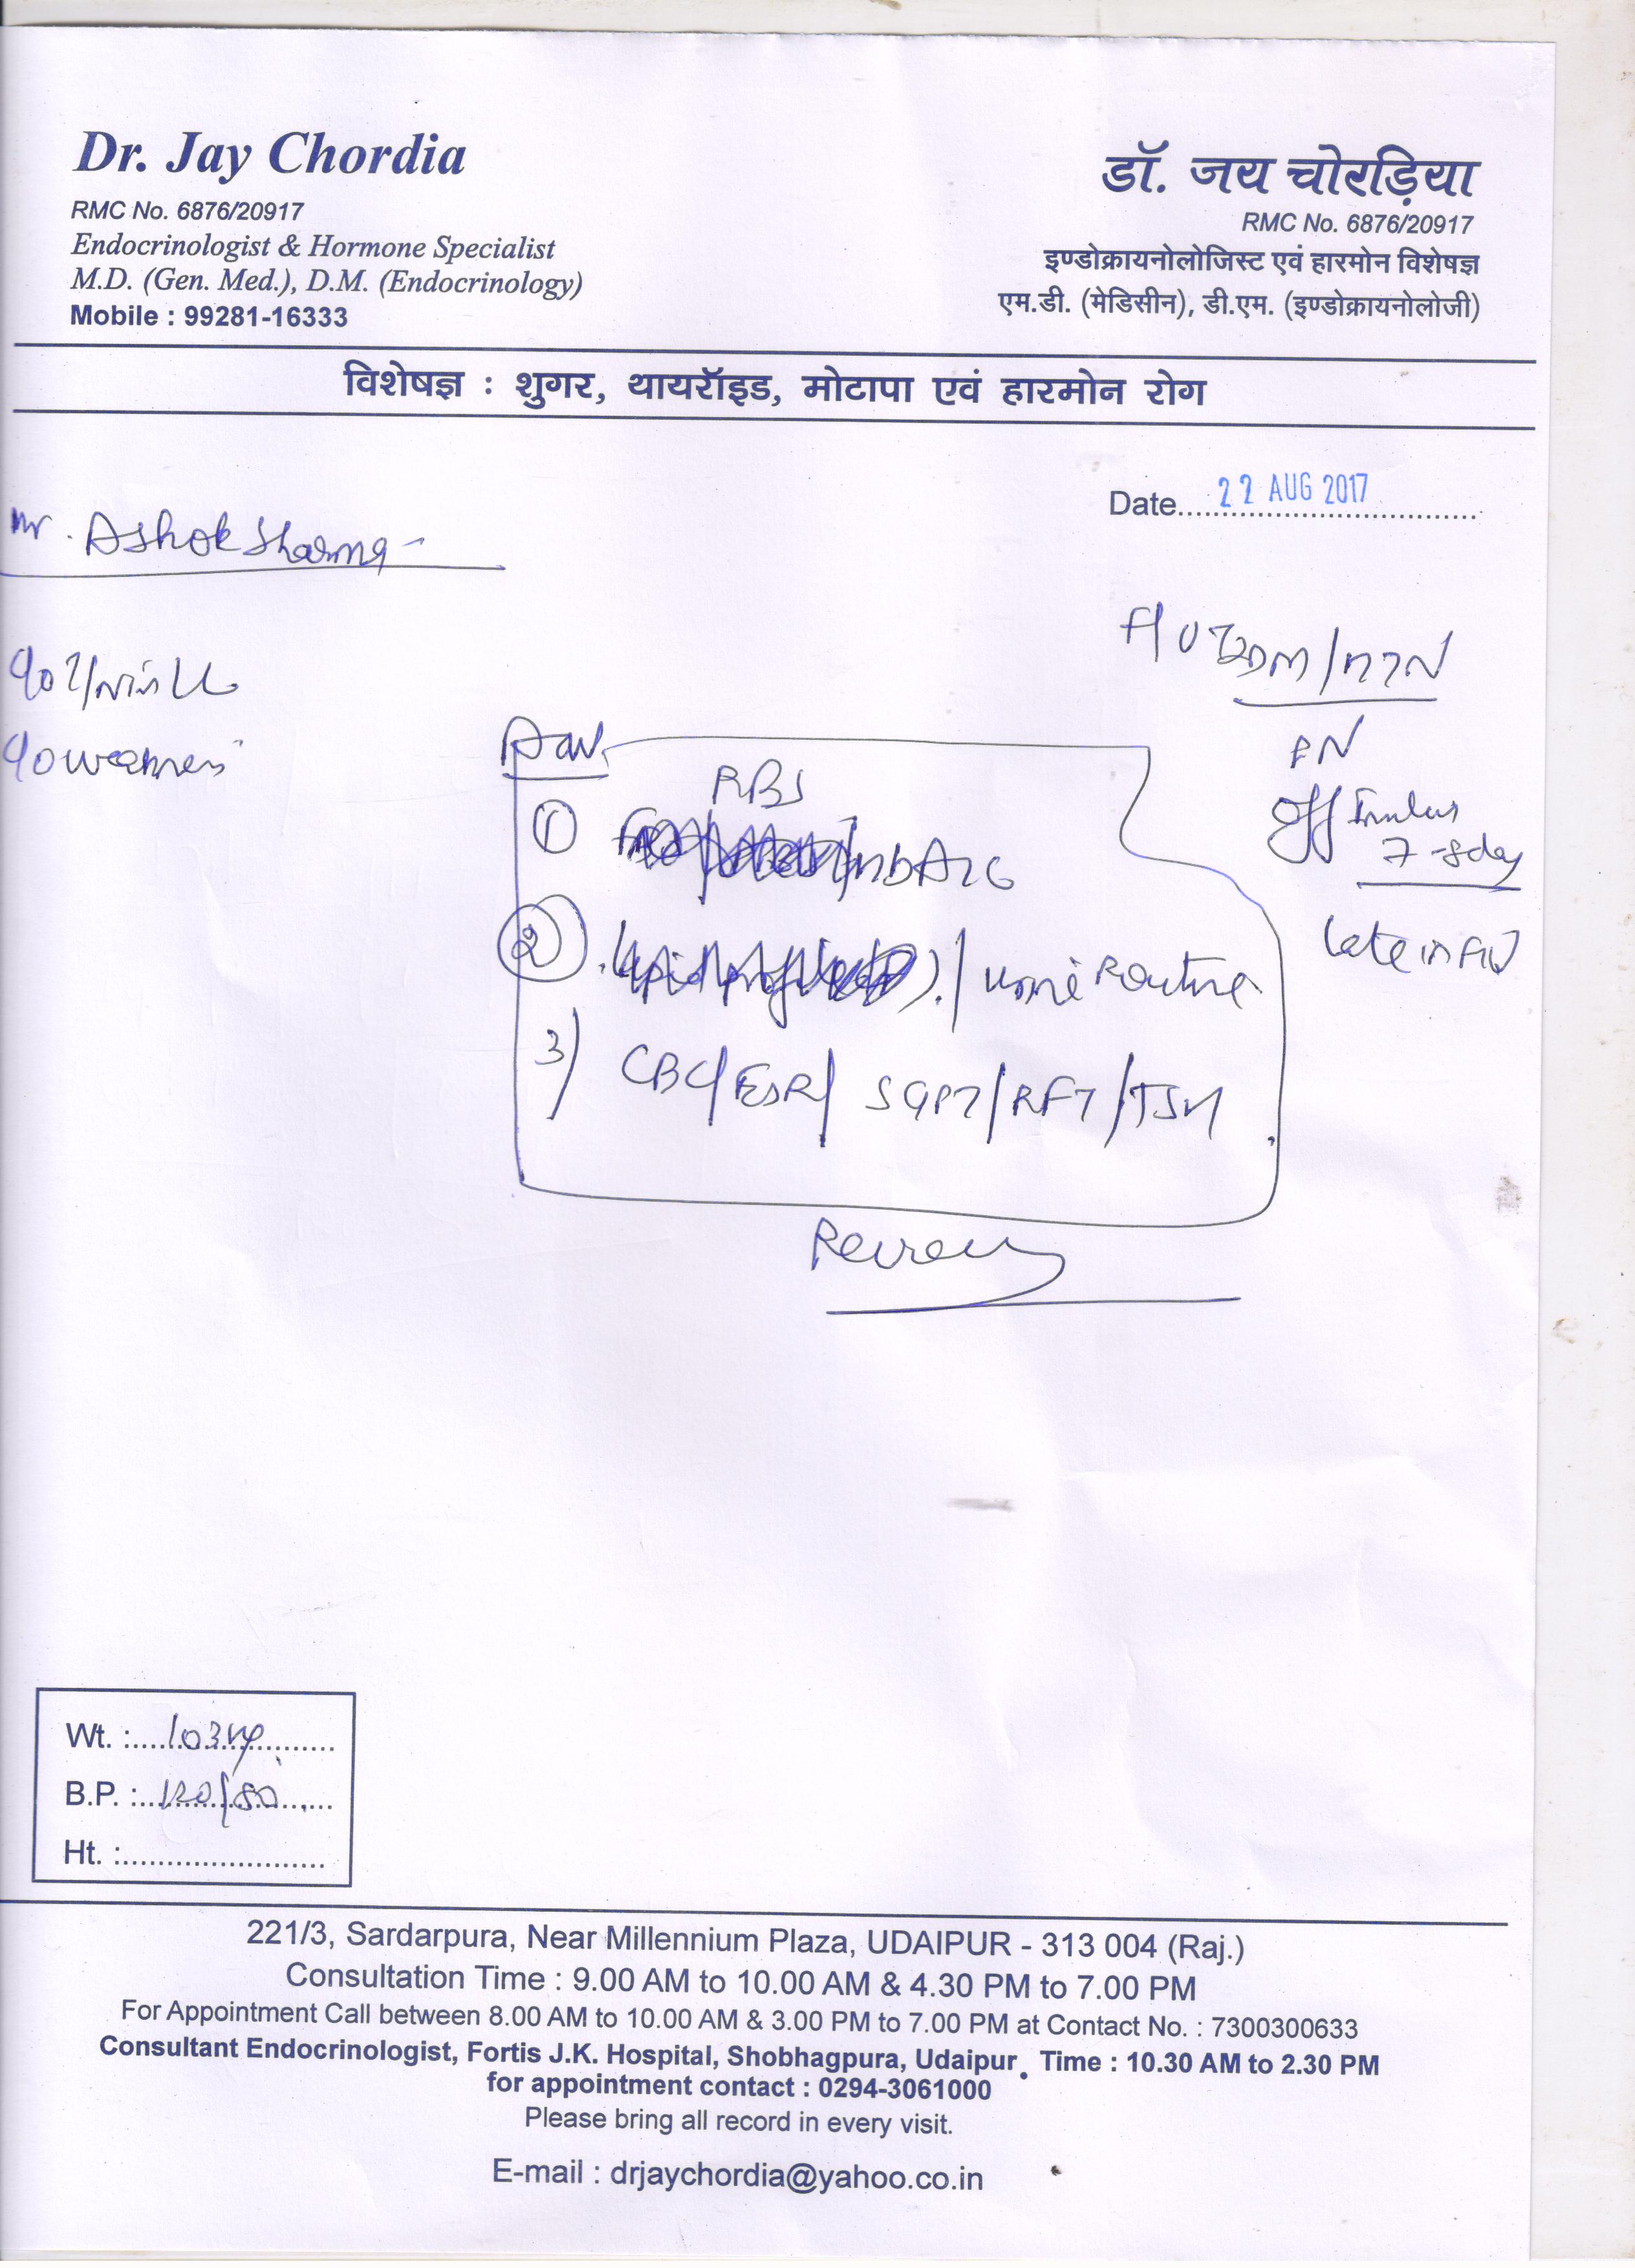 Dr. Jay Chordia
RMC No. 6876/20917
Endocrinologist & Hormone Specialist
M.D. (Gen. Med.), D.M. (Endocrinology)
Mobile : 99281-16333
डॉ. जय चोरड़िया
RMC No. 6876/20917
इण्डोक्रायनोलोजिस्ट एवं हारमोन विशेषज्ञ
एम.डी. (मेडिसीन), डी.एम. (इण्डोक्रायनोलोजी)
विशेषज्ञ : शुगर, थायरॉइड, मोटापा एवं हारमोन रोग
Date 22 AUG 2017
Mr. Ashok Sharma
DM/HTN
Off
7-8day
Late in F/U
Adv.
RBS
① HbA1c
② / Urine Routine
3) CBC/ESR/ SGPT/RFT/TSH
Review
Wt. : 103kg
B.P. : 120/80
Ht. :
221/3, Sardarpura, Near Millennium Plaza, UDAIPUR - 313 004 (Raj.)
Consultation Time : 9.00 AM to 10.00 AM & 4.30 PM to 7.00 PM
For Appointment Call between 8.00 AM to 10.00 AM & 3.00 PM to 7.00 PM at Contact No. : 7300300633
Consultant Endocrinologist, Fortis J.K. Hospital, Shobhagpura, Udaipur. Time : 10.30 AM to 2.30 PM
for appointment contact : 0294-3061000
Please bring all record in every visit.
E-mail : drjaychordia@yahoo.co.in